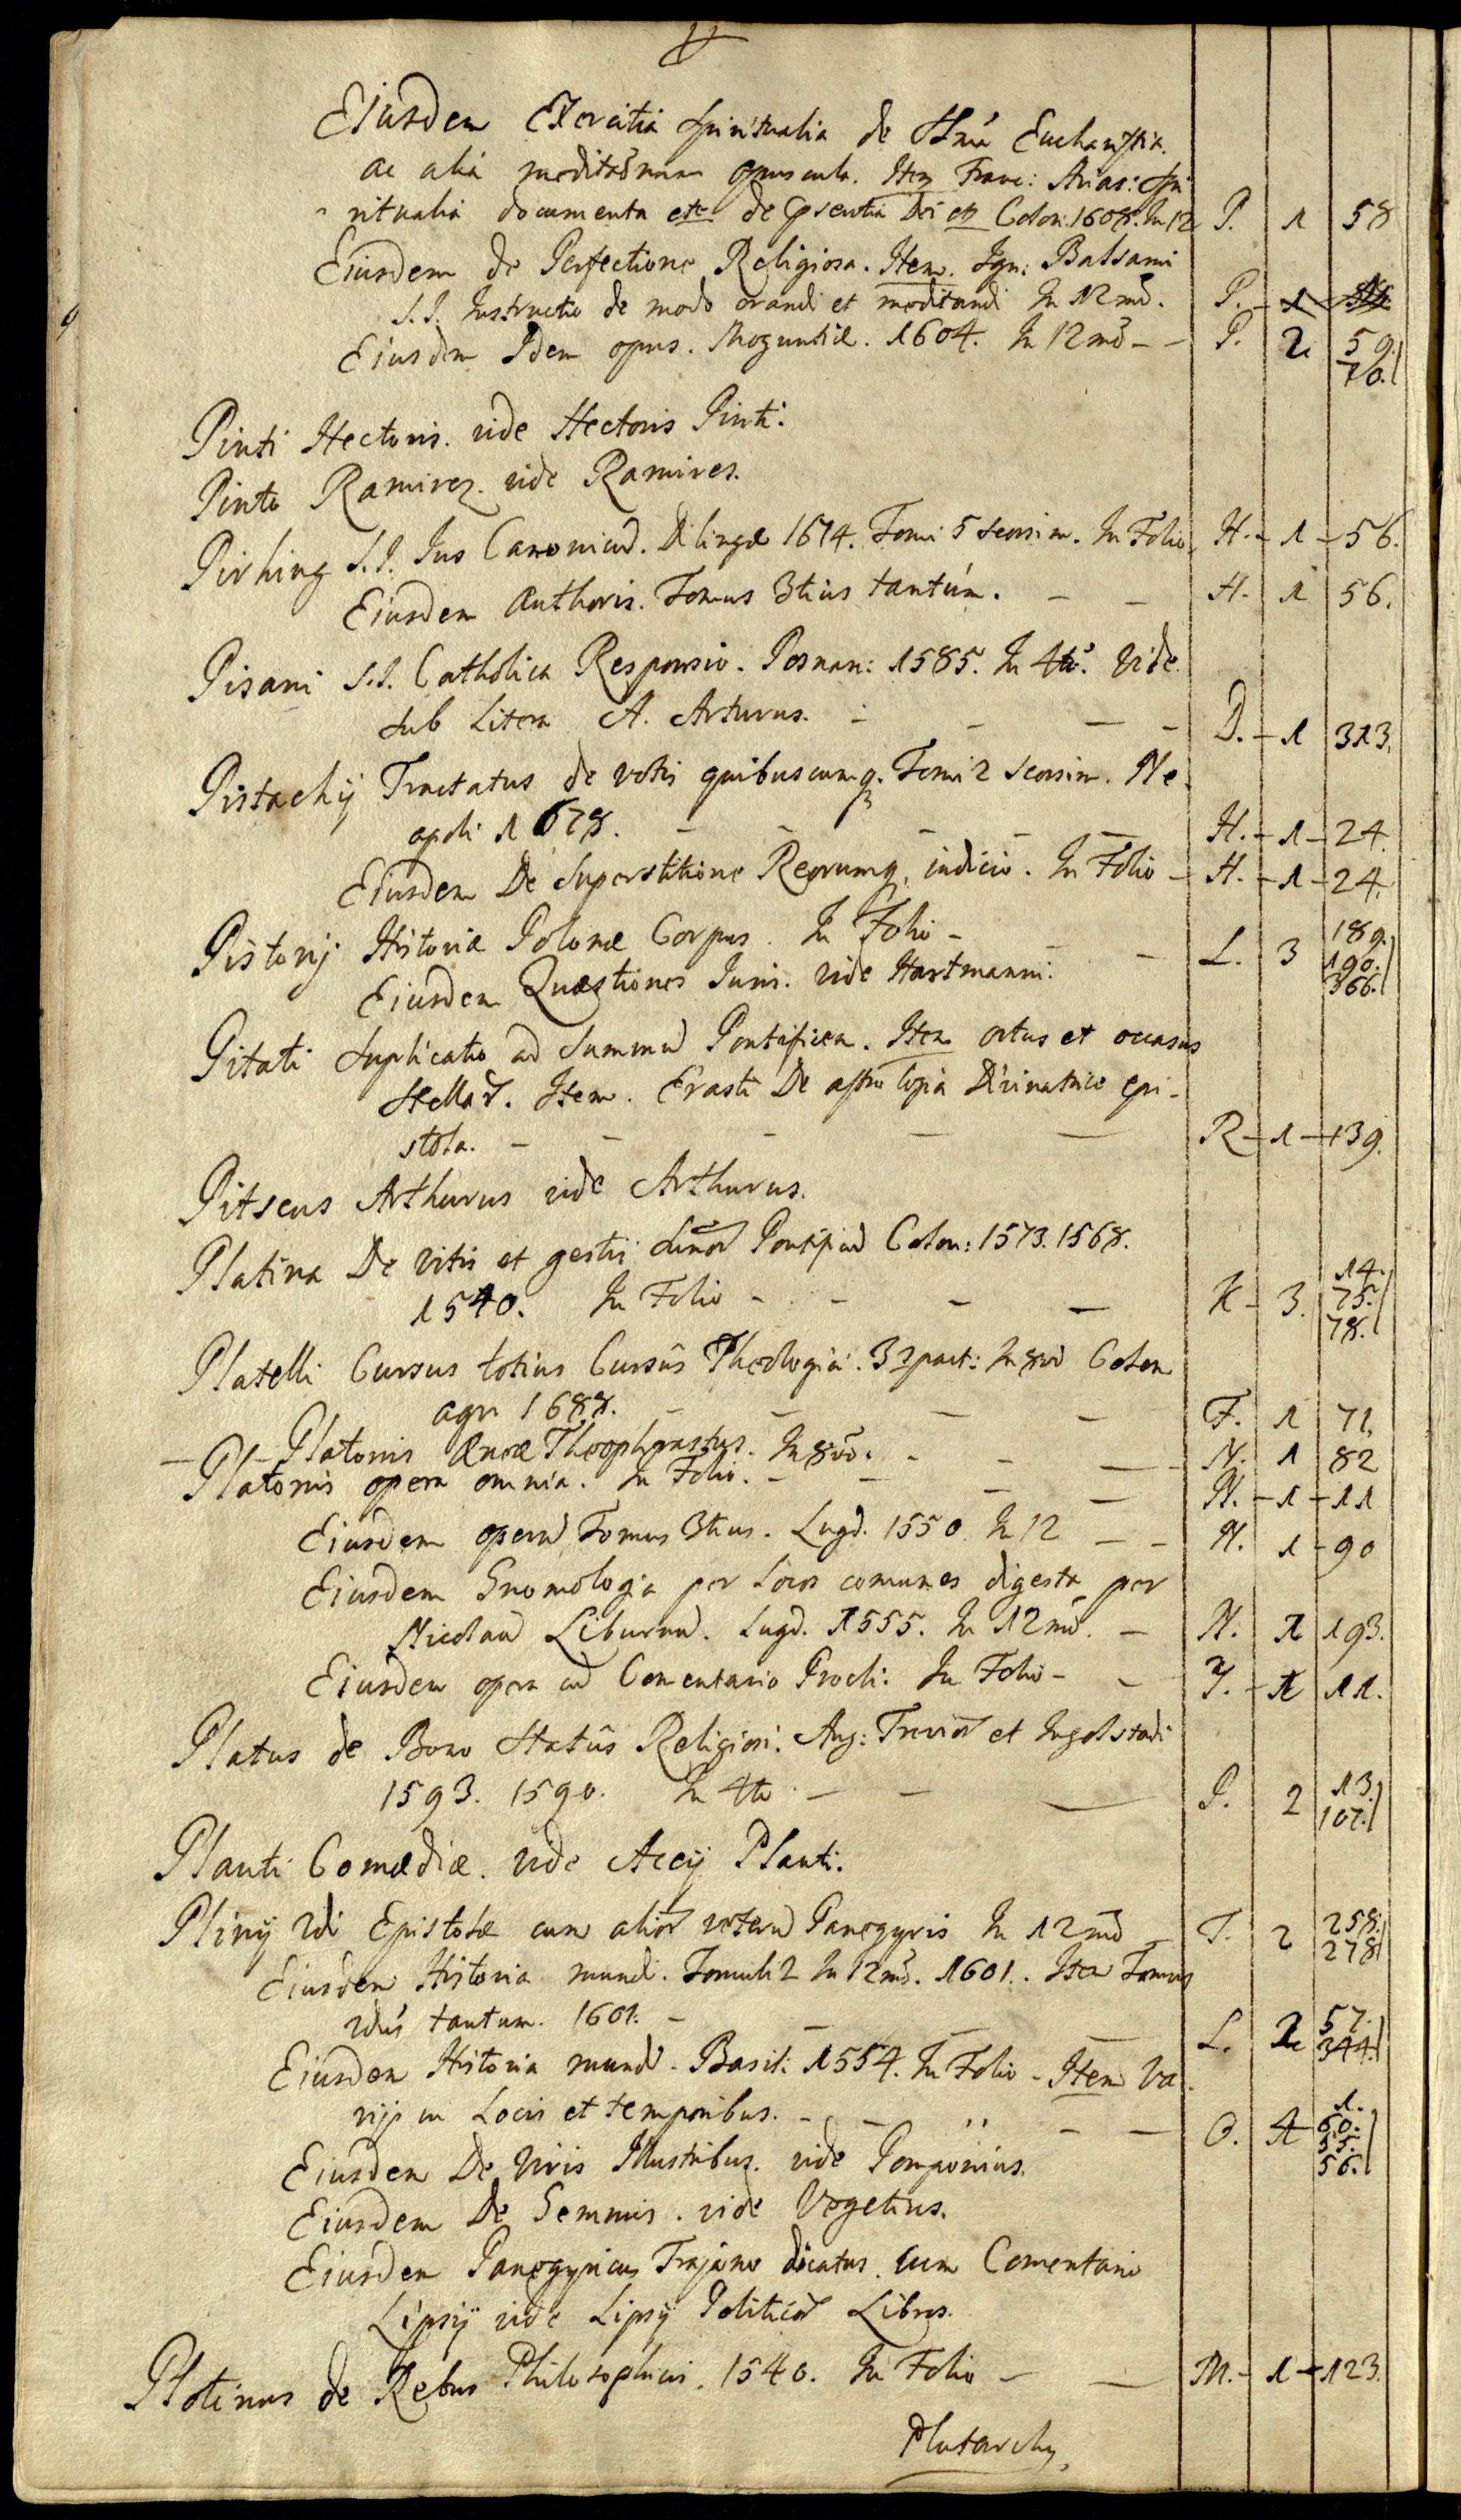 Eiusdem Exercitia spiritualia de SSma Eucharistia.
ac alia meditationum opuscula. Item Franc: Arias: spi-
ritualia documenta etc de psentia Dei etc Colon: 1608. In 12 P. 1 58
Eiusdem de Perfectione Religiosa. Item. Ign: Balsami
S.J. Instructio de modo orandi et meditandi In 12mo. P. 1
Eiusdem Idem opus. Moguntiæ. 1604. In 12mo - - P. 2 59. 70.
Pinti Hectoris. vide Hectoris Pinti.
Pinto Ramirez. vide Ramires.
Pirhing S.J. Jus Canonicũ. Dilingæ 1674. Tomi 5 seorsim. In Folio. H. - 1 - 56.
Eiusdem Authoris. Tomus 3tius tantùm. - - H. 1 56.
Pisani S.J. Catholica Responsio. Posnan: 1585. In 4to. Vide
sub Litera A. Arturus. - - - - D. - 1 313.
Pistachij Tractatus de votis quibuscumq. Tomi 2 seorsim. Ne-
apoli 1678. - - - - - H. - 1 - 24.
Eiusdem De Superstitione Reorumq. indicio. In Folio - H. - 1 - 24.
Pistorij Historiæ Polonæ Corpus. In Folio - - - L. 3 189. 190. 366.
Eiusdem Quæstiones Juris. vide Hartmanni.
Pitati Suplicatio ad Summũ Pontificem. Item ortus et occasus
stellar. Item. Erasti De astrologia Divinatrice epi-
stola. - - - - - R - 1 - 139.
Pitseus Arthurus vide Arthurus.
Platina De Vitis et gestis Sumor Pontificũ Colon: 1573. 1568.
1540. In Folio - - - - K - 3. 14. 75. 78.
Platelli Cursus totius Cursûs Theologici. 3 part: In 8vo Colon
agr 1688. - - - - F. 1 71.
- Platonis Æneæ Theophrastus. In 8vo. - - - N. 1 82
Platonis opera omnia. In Folio. - - - - N. - 1 - 11
Eiusdem operũ Tomus 3tius. Lugd. 1550 In 12 - - N. 1 - 90
Eiusdem Gnomologia per Locos comunes digesta per
Nicolaũ Liburnũ. Lugd. 1555. In 12mo. - N. 1 193.
Eiusdem opera cũ Comentario Procli. In Folio - - Y. - 1 11.
Platus de Bono Statûs Religiosi. Aug: Trevior et Ingolstadi
1593. 1590. In 4to - - - P. 2 13. 107.
Plauti Comædiæ. vide Accij Plauti.
Plinij 2di Epistolæ cum alior veterũ Panegyris In 12mo - T. 2 258. 278
Eiusdem Historia mundi. Tomuli 2 In 12mo. 1601. Item Tomus
2dus tantum. 1601. - - - - L. 2 57. 344.
Eiusdem Historia mundi. Basil: 1554. In Folio - Item Va-
rijs in Locis et temporibus. - - - - O. 4 1. 60. 55. 56.
Eiusdem De Viris Illustribus. vide Pomponius.
Eiusdem De Gemmis. vide Vegetius.
Eiusdem Panegyricus Trajano dicatus. cum Comentario
Lipsij vide Lipsij Politicor Libros.
Plotinus de Rebus Philosophicis. 1540. In Folio - - M. - 1 - 123.
Plutarchy